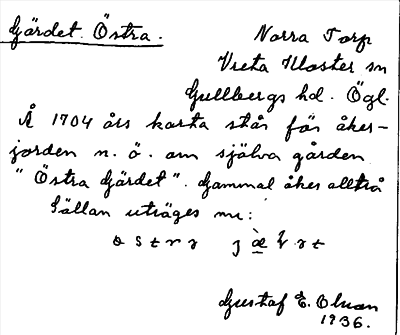 Gärdet. Östra.
Norra Torp
Vreta Kloster sn
Gullbergs hd. Ögl.
Å 1704 års karta står för åker-
jorden n. ö. om själva gården
"Östra Gärdet". Gammal åker alltså
Sällan uträges nu:
Gustaf E. Olson
1936.